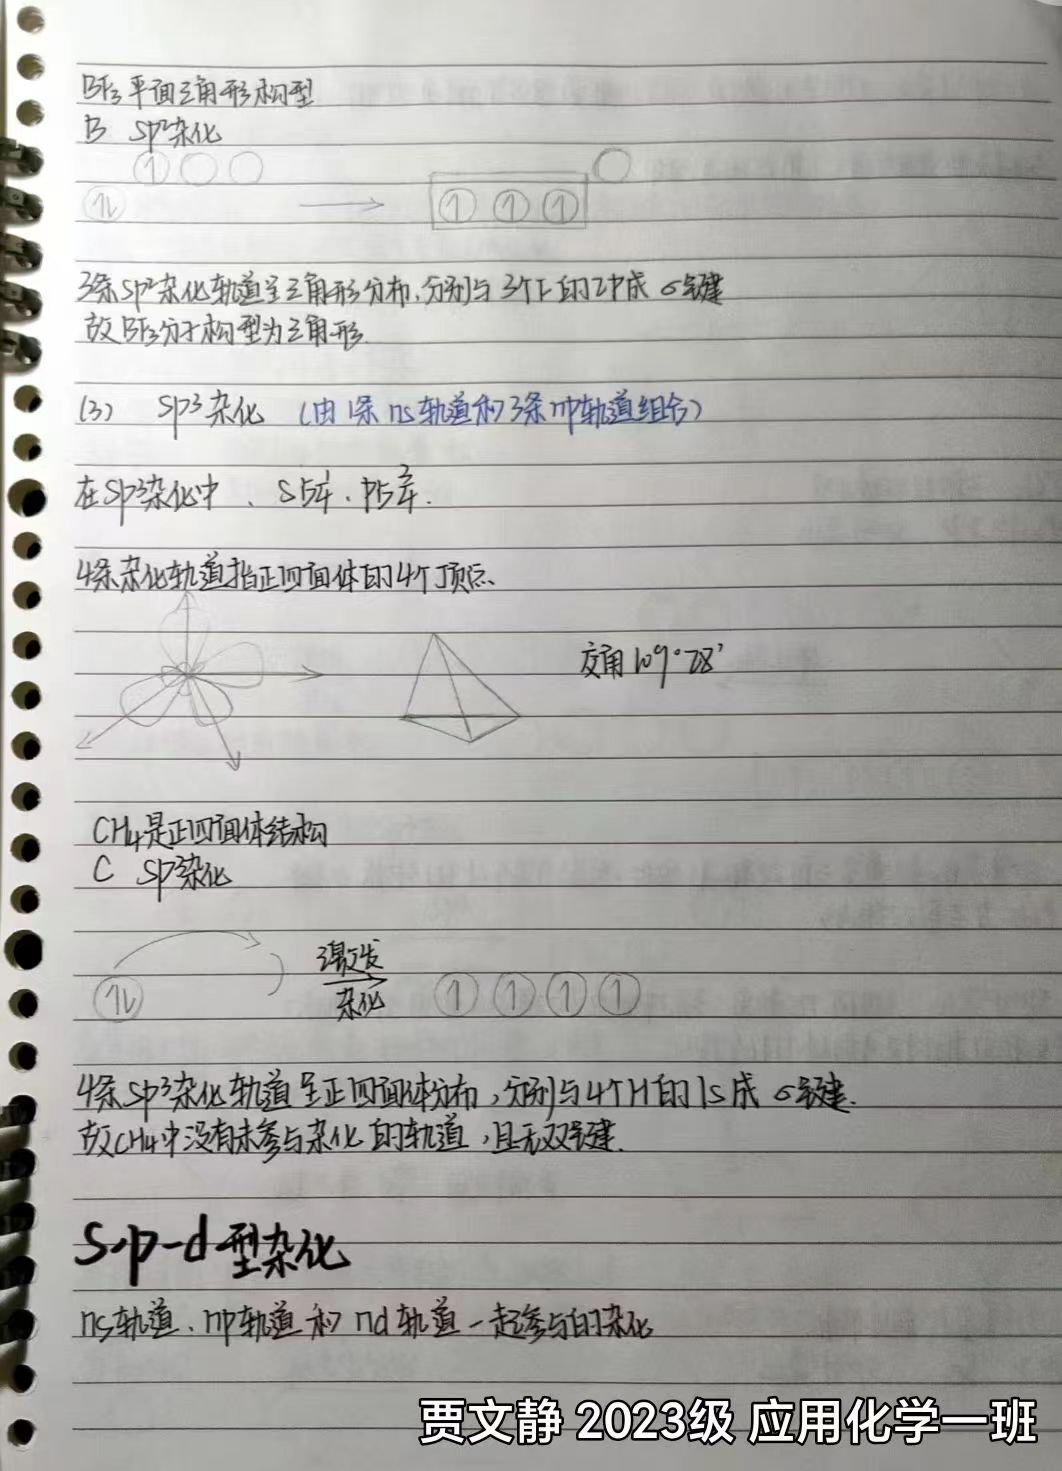 BF₃平面三角形构型
B sp²杂化
3条sp²杂化轨道呈三角形分布,分别与3个F的2p成σ键
故BF₃分子构型为三角形.
(3) sp³杂化 (由1条ns轨道和3条np轨道组合)
在sp³杂化中、s占1/4、p占3/4.
4条杂化轨道指正四面体的4个顶点、
交角109°28′
CH₄是正四面体结构
C sp³杂化
激发
杂化
4条sp³杂化轨道呈正四面体分布,分别与4个H的1s成σ键.
故CH₄中没有未参与杂化的轨道,且无双键.
s-p-d型杂化
ns轨道、np轨道和nd轨道一起参与的杂化
贾文静 2023级 应用化学一班